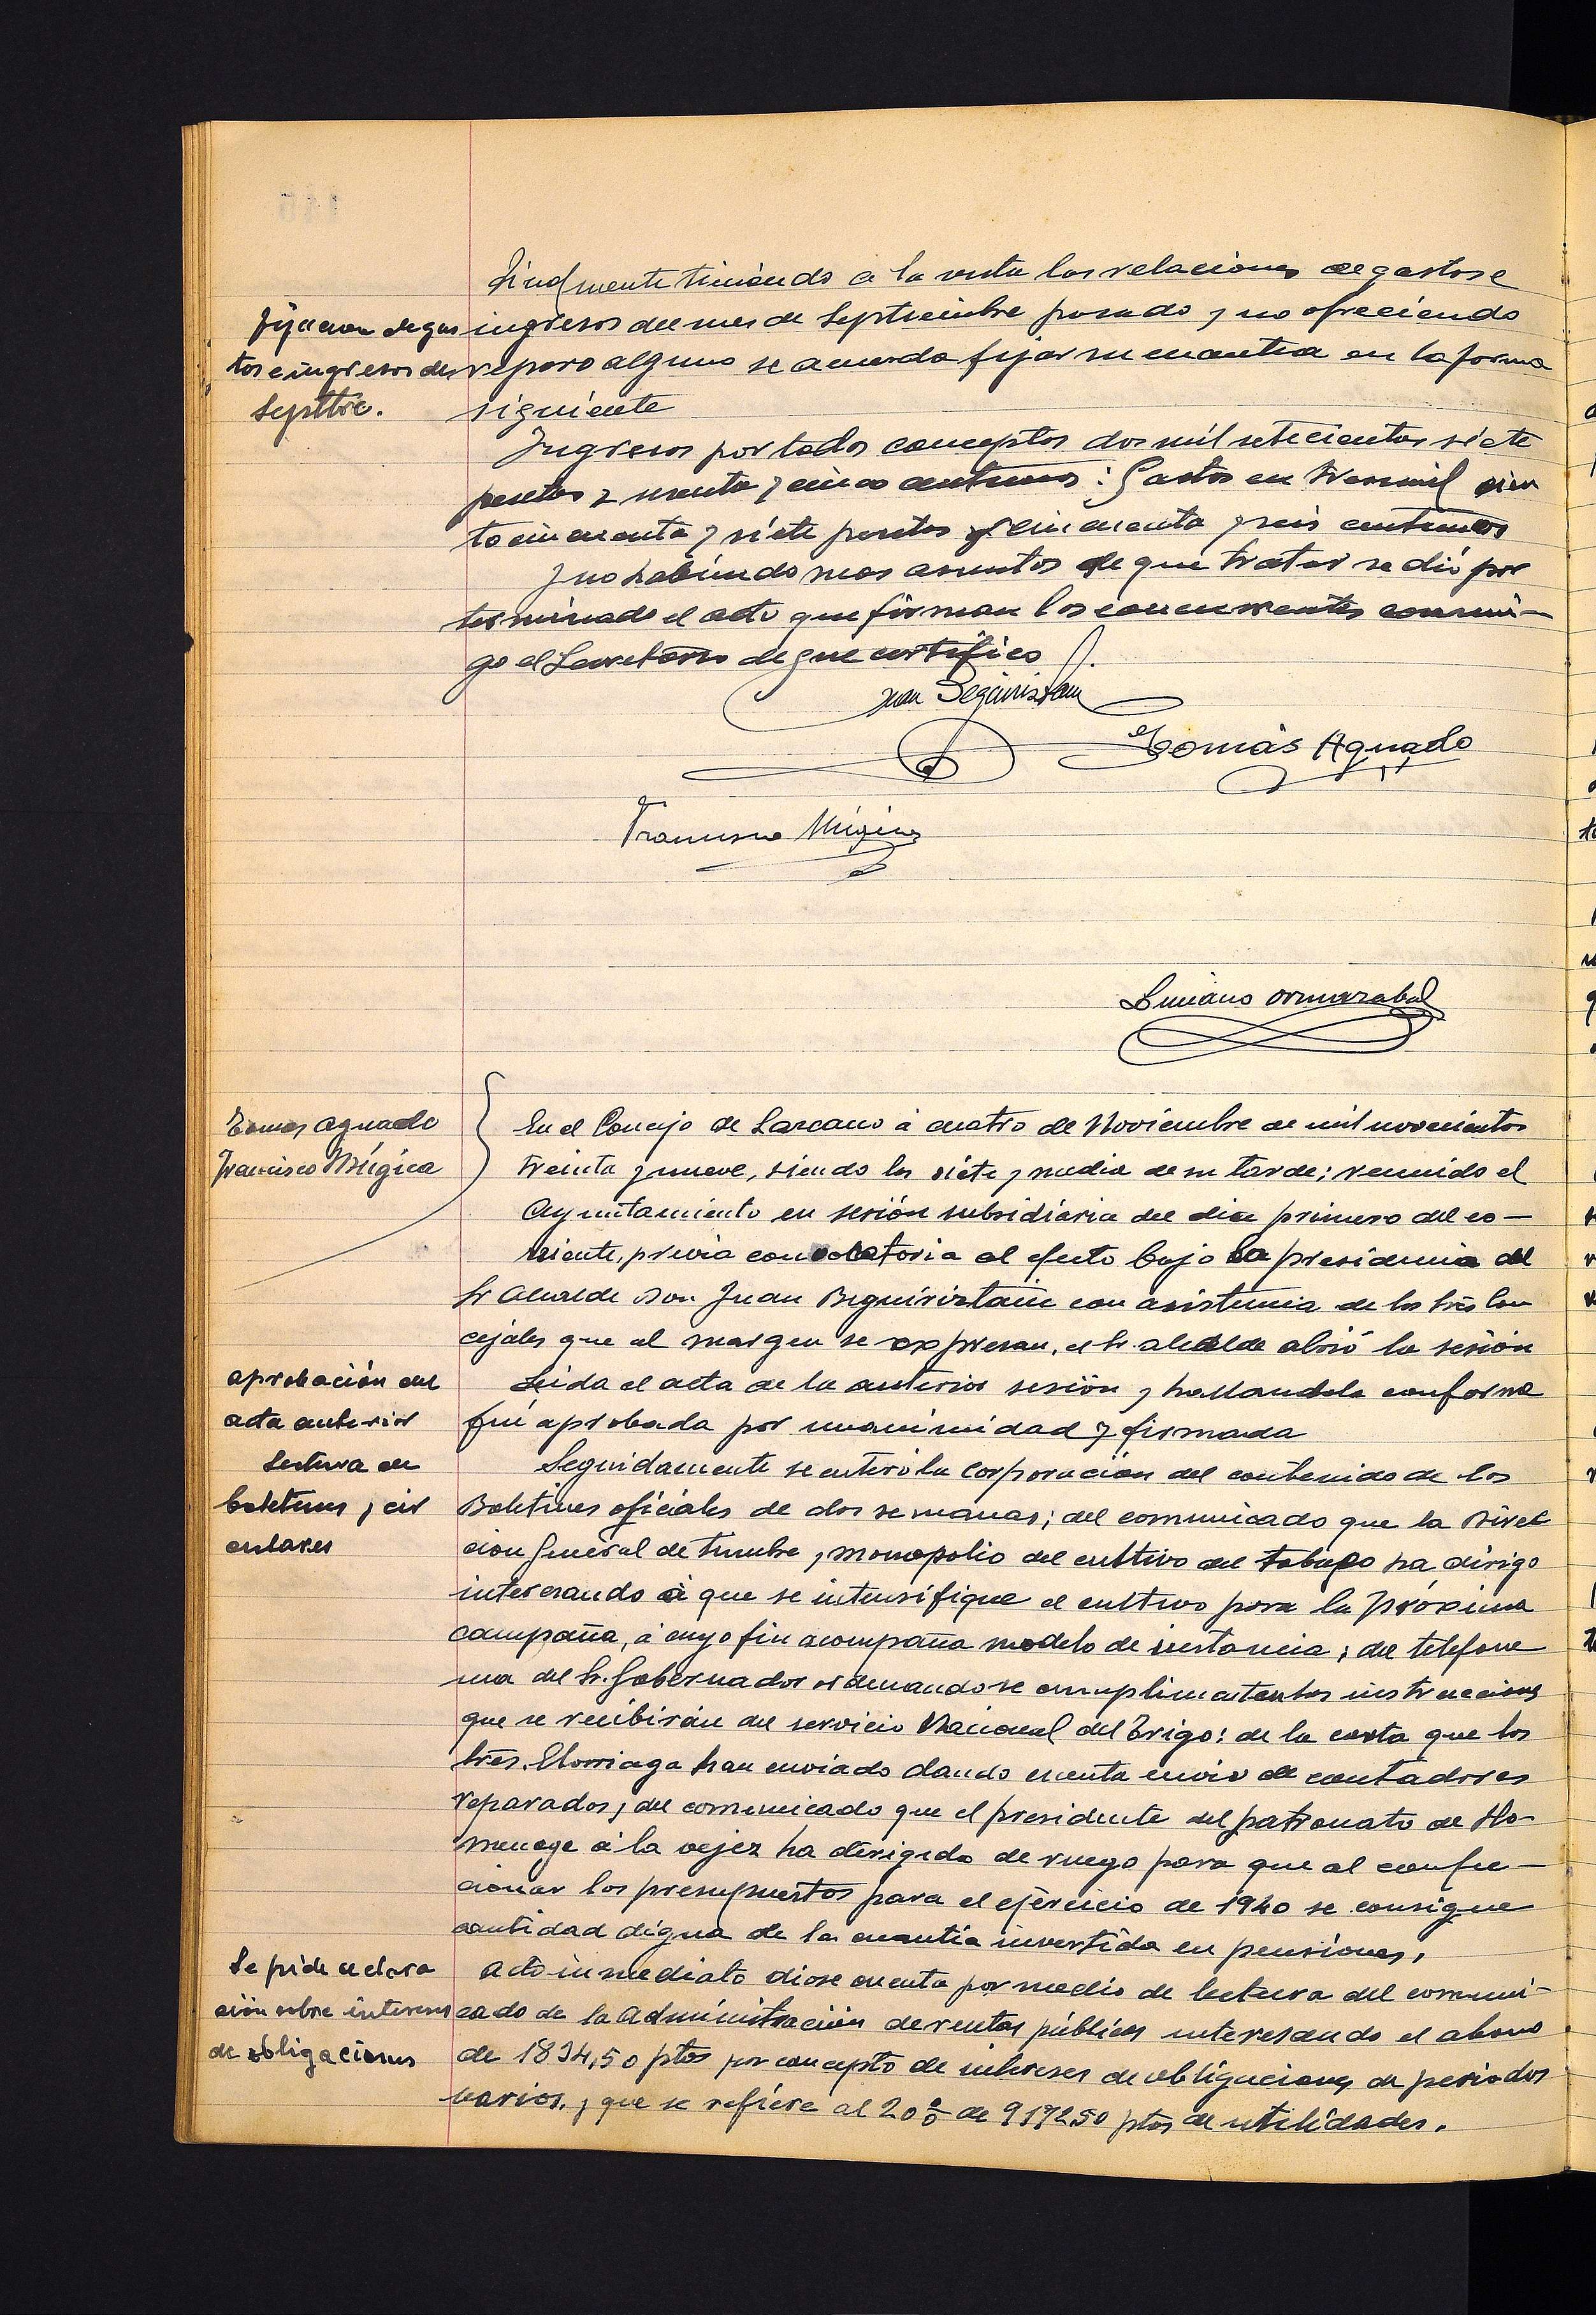 Finalmente teniendo a la vista las relaciones de gastos e
Fijacion de gas
tos e ingresos de
Septtbre.
ingresos del mes de Septiembre pasado y no ofreciendo
reparo alguno se acuerda fijar su cuantia en la forma
siguiente
Ingresos por todos conceptos dos mil setecientas siete
pesetas y sesenta y cinco centimos: Gastos en tres mil cien
to cincuenta y siete pesetas y cincuenta y seis centimos
Y no habiendo mas asuntos de que tratar se dió por
terminado el acto que firman los concurrentes conmi-
go el Secretario de que certifico
Juan Beguiristain
Tomás Aguado
Francisco Múgica
Luciano Ormazabal
Tomas Aguado
Francisco Múgica
En el Concejo de Lazcano á cuatro de Noviembre de mil novecientos
treinta y nueve, siendo las siete y media de su tarde; reunido el
Ayuntamiento en sesión subsidiaria del dia primero del co-
rriente, previa convocatoria al efecto bajo la presidencia del
Sr Alcalde Don Juan Beguiristain con asistencia de los tres Con
cejales que al margen se expresan, el Sr. alcalde abrió la sesión
aprobación del
acta anterior
Leida el acta de la anterior sesión y hallandola conforme
fué aprobada por unanimidad y firmada
Lectura de
boletines y cir
culares
Seguidamente se enteró la corporación del contenido de los
Boletines oficiales de dos semanas; del comunicado que la Direc
cion General de Timbre y monopolio del cultivo del tabaco ha dirigo
interesando á que se intensifique el cultivo para la próxima
campaña, á cuyo fin acompaña modelo de instancia; del telefone
ma del Sr. Gobernador ordenando se cumplimenten las instrucciones
que se recibirán del servicio Nacional del Trigo: de la carta que los
Sres. Elorriaga han enviado dando cuenta envio de contadores
reparados; del comunicado que el presidente del patronato de Ho-
menage á la vejez ha dirigido de ruego para que al confec-
cionar los presupuestos para el ejercicio de 1940 se consigne
cantidad digna de la cuantia invertida en pensiones.
Se pide aclara
ción sobre intereses
de obligaciones
Acto inmediato diose cuenta por medio de lectura del comuni-
cado de la Administración de rentas públicas interesando el abono
de 1834,50 ptas por concepto de intereses de obligaciones de periodos
varios, y que se refiere al 20 % de 9172,50 ptas de utilidades.